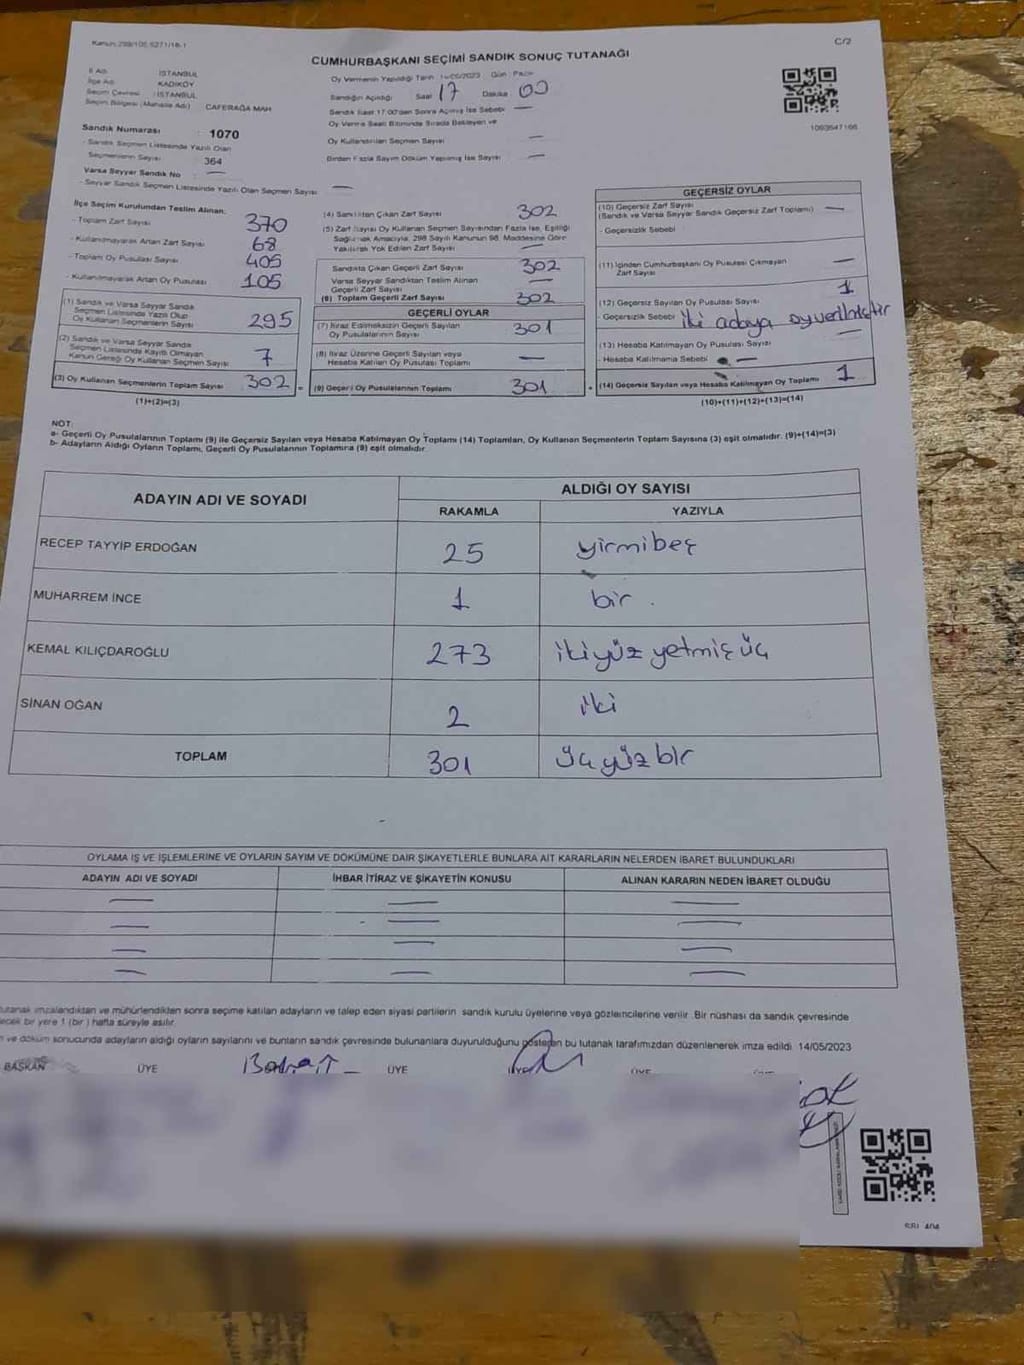 Kanun:298/105,6271/18-1
C/2
CUMHURBAŞKANI SEÇİMİ SANDIK SONUÇ TUTANAĞI
İl Adı : İSTANBUL
İlçe Adı : KADIKÖY
Seçim Çevresi : İSTANBUL
Seçim Bölgesi (Mahalle Adı) : CAFERAĞA MAH
Sandık Numarası : 1070
- Sandık Seçmen Listesinde Yazılı Olan
Seçmenlerin Sayısı : 364
Varsa Seyyar Sandık No : —
- Seyyar Sandık Seçmen Listesinde Yazılı Olan Seçmen Sayısı : —
Oy Vermenin Yapıldığı Tarih 14/05/2023 Gün : Pazar
Sandığın Açıldığı Saat 17 Dakika 00
Sandık Saat 17.00'den Sonra Açılmış İse Sebebi —
Oy Verme Saati Bitiminde Sırada Bekleyen ve
Oy Kullandırılan Seçmen Sayısı —
Birden Fazla Sayım Döküm Yapılmış İse Sayısı —
1093647166
İlçe Seçim Kurulundan Teslim Alınan:
- Toplam Zarf Sayısı 370
- Kullanılmayarak Artan Zarf Sayısı 68
- Toplam Oy Pusulası Sayısı 405
- Kullanılmayarak Artan Oy Pusulası 105
(1) Sandık ve Varsa Seyyar Sandık
Seçmen Listesinde Yazılı Olup
Oy Kullanan Seçmenlerin Sayısı 295
(2) Sandık ve Varsa Seyyar Sandık
Seçmen Listesinde Kayıtlı Olmayan
Kanun Gereği Oy Kullanan Seçmen Sayısı 7
(3) Oy Kullanan Seçmenlerin Toplam Sayısı 302 =
(1)+(2)=(3)
(4) Sandıktan Çıkan Zarf Sayısı 302
(5) Zarf Sayısı Oy Kullanan Seçmen Sayısından Fazla İse, Eşitliği
Sağlamak Amacıyla, 298 Sayılı Kanunun 98. Maddesine Göre
Yakılarak Yok Edilen Zarf Sayısı —
Sandıkta Çıkan Geçerli Zarf Sayısı 302
Varsa Seyyar Sandıktan Teslim Alınan
Geçerli Zarf Sayısı —
(6) Toplam Geçerli Zarf Sayısı 302
GEÇERLİ OYLAR
(7) İtiraz Edilmeksizin Geçerli Sayılan
Oy Pusulalarının Sayısı 301
(8) İtiraz Üzerine Geçerli Sayılan veya
Hesaba Katılan Oy Pusulası Toplamı —
(9) Geçerli Oy Pusulalarının Toplamı 301 +
GEÇERSİZ OYLAR
(10) Geçersiz Zarf Sayısı
(Sandık ve Varsa Seyyar Sandık Geçersiz Zarf Toplamı) —
- Geçersizlik Sebebi
(11) İçinden Cumhurbaşkanı Oy Pusulası Çıkmayan
Zarf Sayısı —
(12) Geçersiz Sayılan Oy Pusulası Sayısı 1
- Geçersizlik Sebebi : iki adaya oy verilmiştir
(13) Hesaba Katılmayan Oy Pusulası Sayısı —
Hesaba Katılmama Sebebi —
(14) Geçersiz Sayılan veya Hesaba Katılmayan Oy Toplamı 1
(10)+(11)+(12)+(13)=(14)
NOT:
a- Geçerli Oy Pusulalarının Toplamı (9) ile Geçersiz Sayılan veya Hesaba Katılmayan Oy Toplamı (14) Toplamları, Oy Kullanan Seçmenlerin Toplam Sayısına (3) eşit olmalıdır. (9)+(14)=(3)
b- Adayların Aldığı Oyların Toplamı, Geçerli Oy Pusulalarının Toplamına (9) eşit olmalıdır.
ADAYIN ADI VE SOYADI
ALDIĞI OY SAYISI
RAKAMLA YAZIYLA
RECEP TAYYİP ERDOĞAN 25 yirmibeş
MUHARREM İNCE 1 bir.
KEMAL KILIÇDAROĞLU 273 ikiyüz yetmiş üç
SİNAN OĞAN 2 iki
TOPLAM 301 üç yüz bir
OYLAMA İŞ VE İŞLEMLERİNE VE OYLARIN SAYIM VE DÖKÜMÜNE DAİR ŞİKAYETLERLE BUNLARA AİT KARARLARIN NELERDEN İBARET BULUNDUKLARI
ADAYIN ADI VE SOYADI İHBAR İTİRAZ VE ŞİKAYETİN KONUSU ALINAN KARARIN NEDEN İBARET OLDUĞU
tutanak imzalandıktan ve mühürlendikten sonra seçime katılan adayların ve talep eden siyasi partilerin sandık kurulu üyelerine veya gözlemcilerine verilir. Bir nüshası da sandık çevresinde
ecek bir yere 1 (bir) hafta süreyle asılır.
ve döküm sonucunda adayların aldığı oyların sayılarını ve bunların sandık çevresinde bulunanlara duyurulduğunu gösteren bu tutanak tarafımızdan düzenlenerek imza edildi. 14/05/2023
BAŞKAN ÜYE ÜYE ÜYE